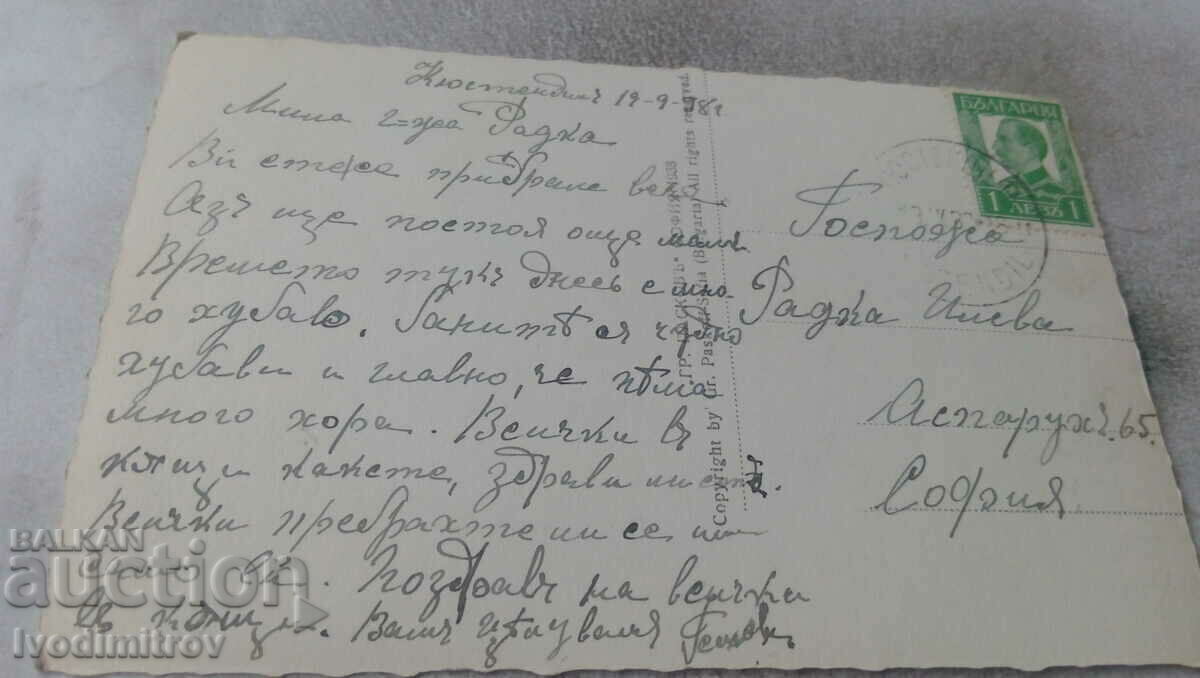 Кюстендилъ 19-9-38 г
Мила г-жа Радка
Вий сте се прибрале веч
Азъ ще постоя още малк
Времето тукъ днесь е мно
го хубаво. Банитѣ ся чудно
хубави и главно, че нѣма
много хора. Всички въ
кѫщи какъ сте, здрави ли сте
Всички прибрахте ли се
Вий. Поздравъ на всички
въ кѫщи. Вами цѣлувамъ
БЪЛГАРИЯ
1 ЛЕВЪ 1
Госпожа
Радка Илиева
Аспарухъ. 65.
София
ГР. ПАСКОВЪ СОФИЯ 1938
Copyright by Gr. Paskoff Sofia (Bulgaria) All rights reserved.
BALKAN
auction
Ivodimitrov